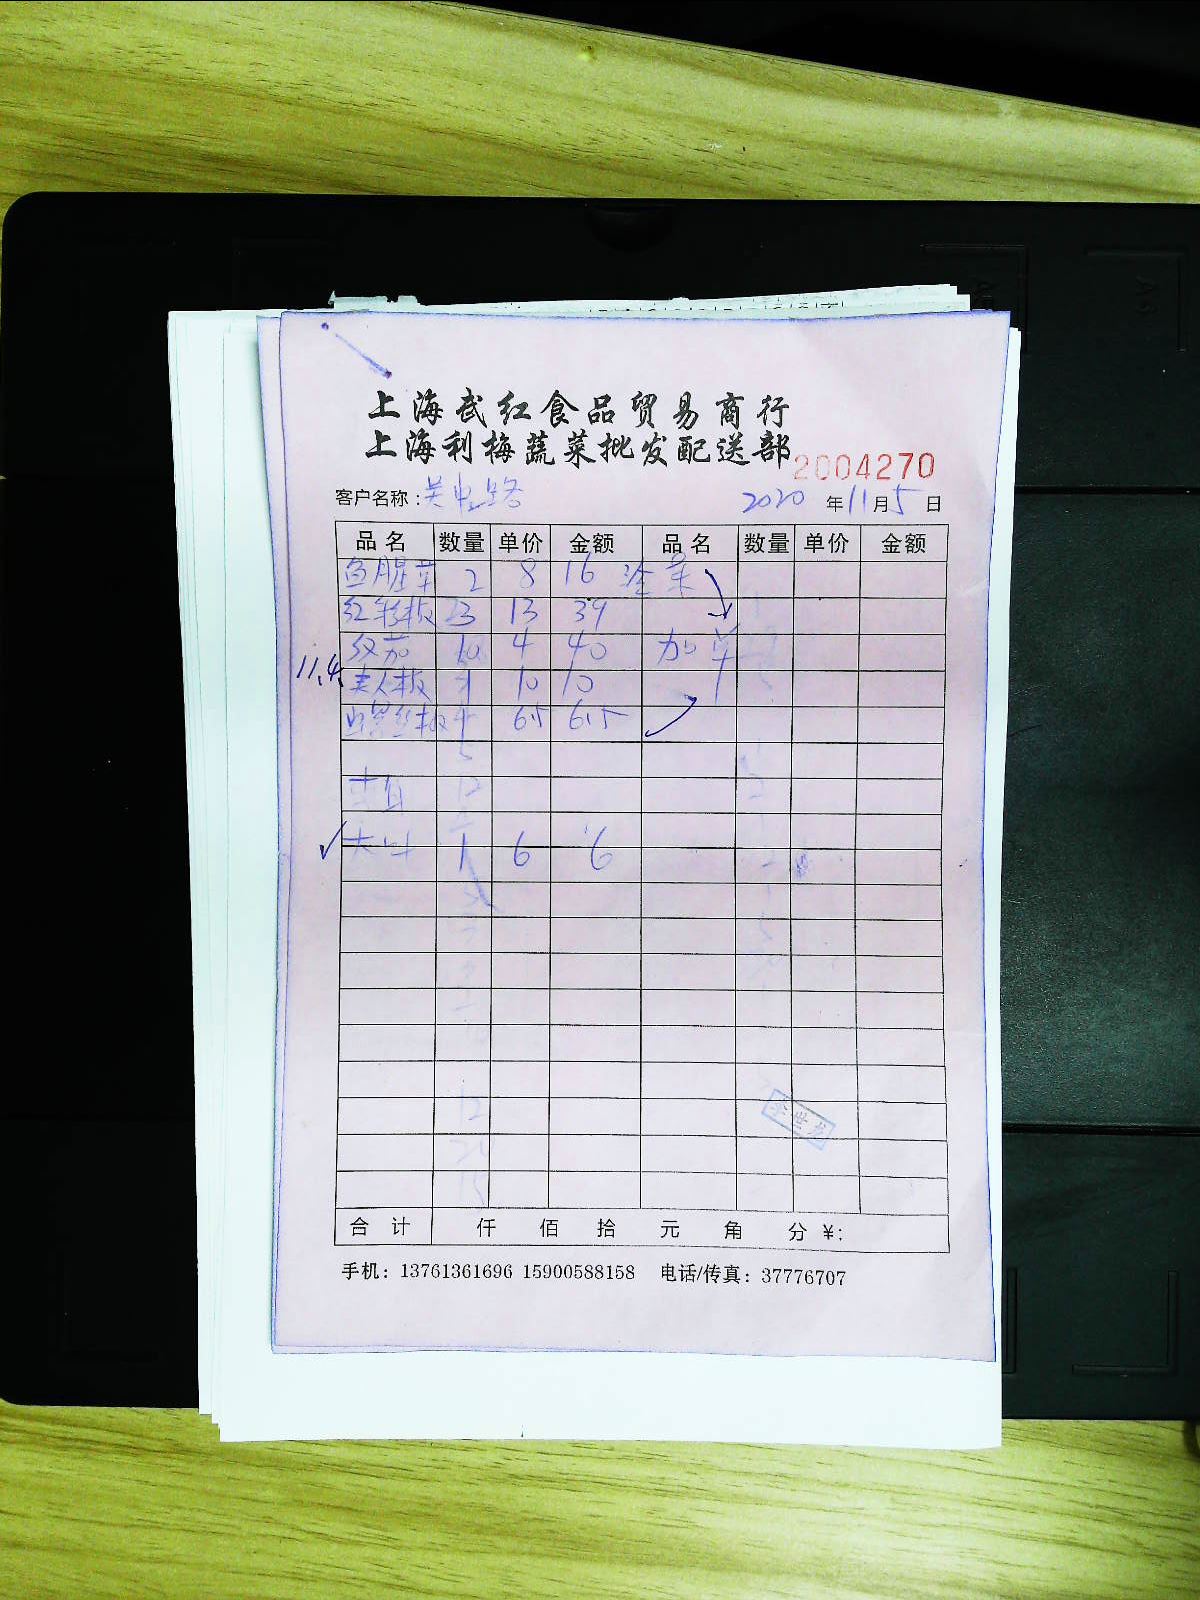 上海武红食品贸易商行
上海利梅蔬菜批发配送部
2004270
客户名称: 吴中路 2020 年 11 月 5 日
品名 数量 单价 金额 品名 数量 单价 金额
鱼腥草 2 8 16
红彩椒 3 13 39
红茄 10 4 40 加单
11.4. 美人椒 1 10 10
螺丝椒 6.5 6.5
大叶 1 6 6
李世龙
合计 仟 佰 拾 元 角 分 ¥:
手机: 13761361696 15900588158 电话/传真: 37776707